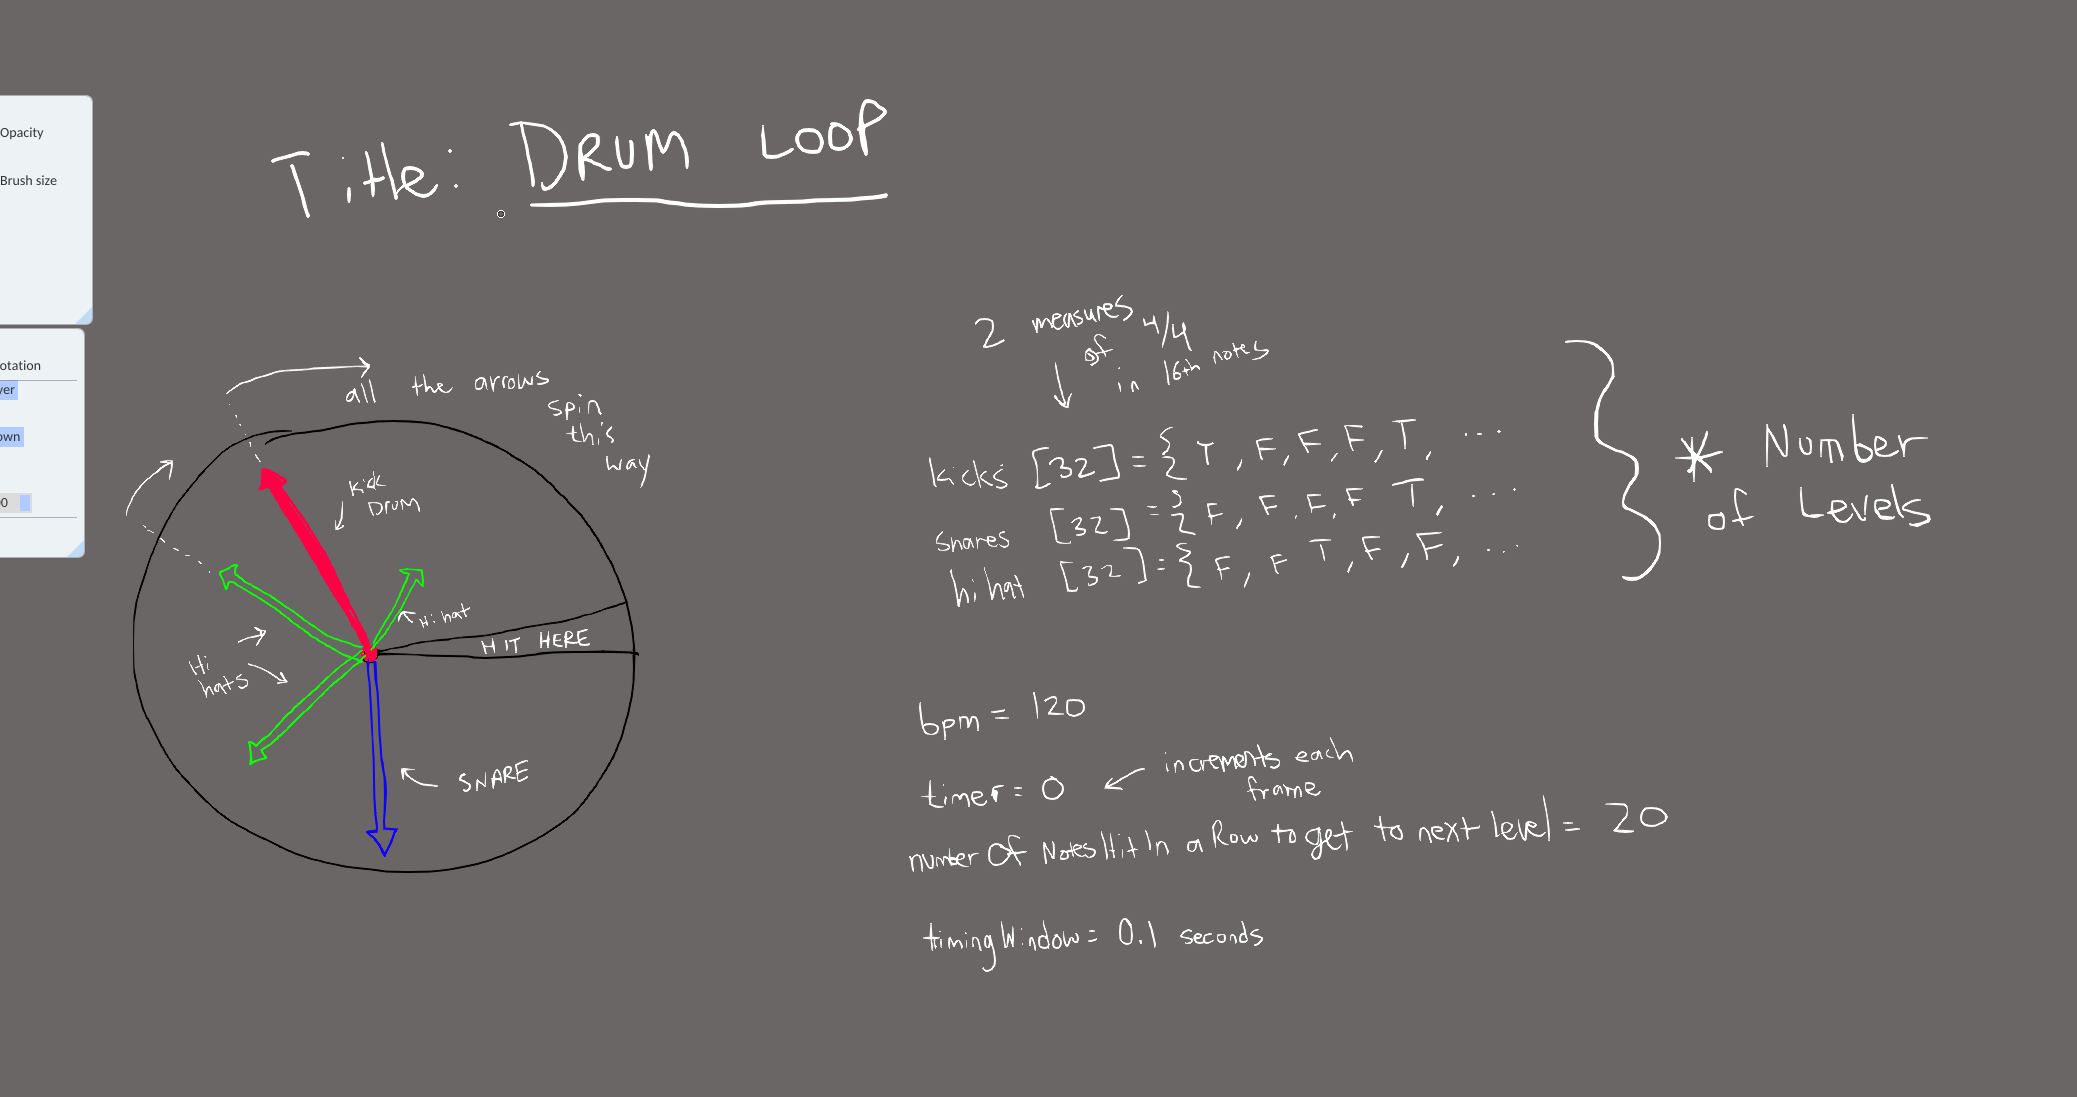 Opacity
Brush size
otation
yer
own
00
Title: DRUM LOOP
all the arrows
spin
this
way
Kick
DRUM
Hi hat
HIT HERE
Hi
hats
SNARE
2 measures
of 4/4
in 16th notes
kicks [32] = { T, F, F, F, T, ...
snares [32] = { F, F, F, F T, ...
hihat [32] = { F, F T, F, F, ...
* Number
of Levels
bpm = 120
timer = 0
increments each
frame
number Of Notes Hit In a Row to get to next level = 20
timingWindow = 0.1 seconds